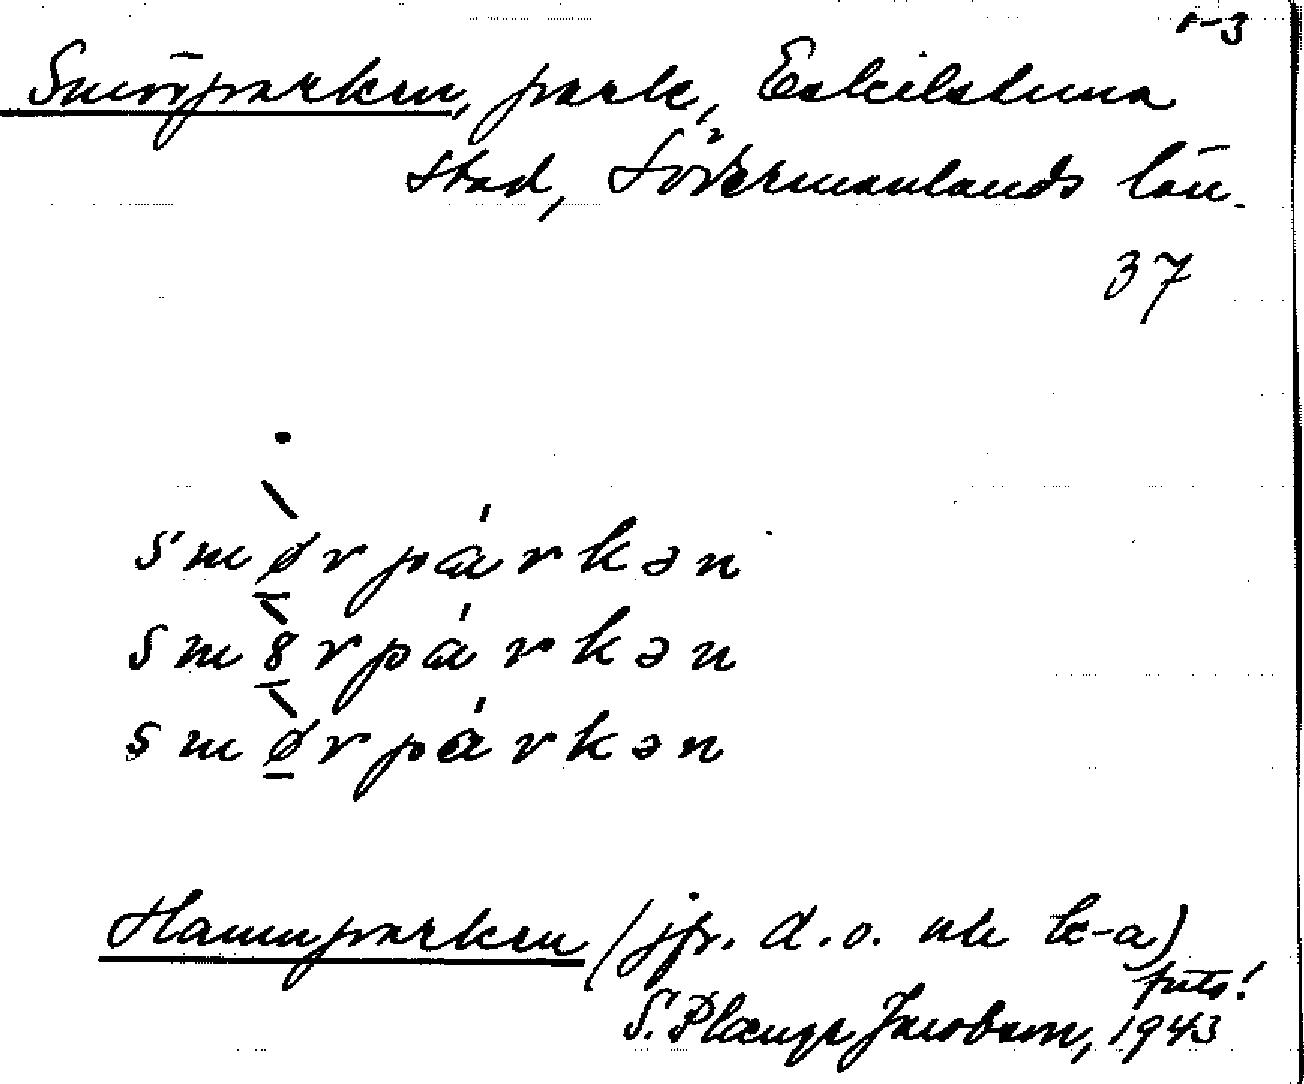 1-3
Smörparken, park, Eskilstuna
stad, Södermanlands län.
37
smørpárkən
sm8rpárkən
smørpárkən
Hamnparken (jfr. d.o. ub k-a)
foto!
S. Plænge Jacobson, 1943